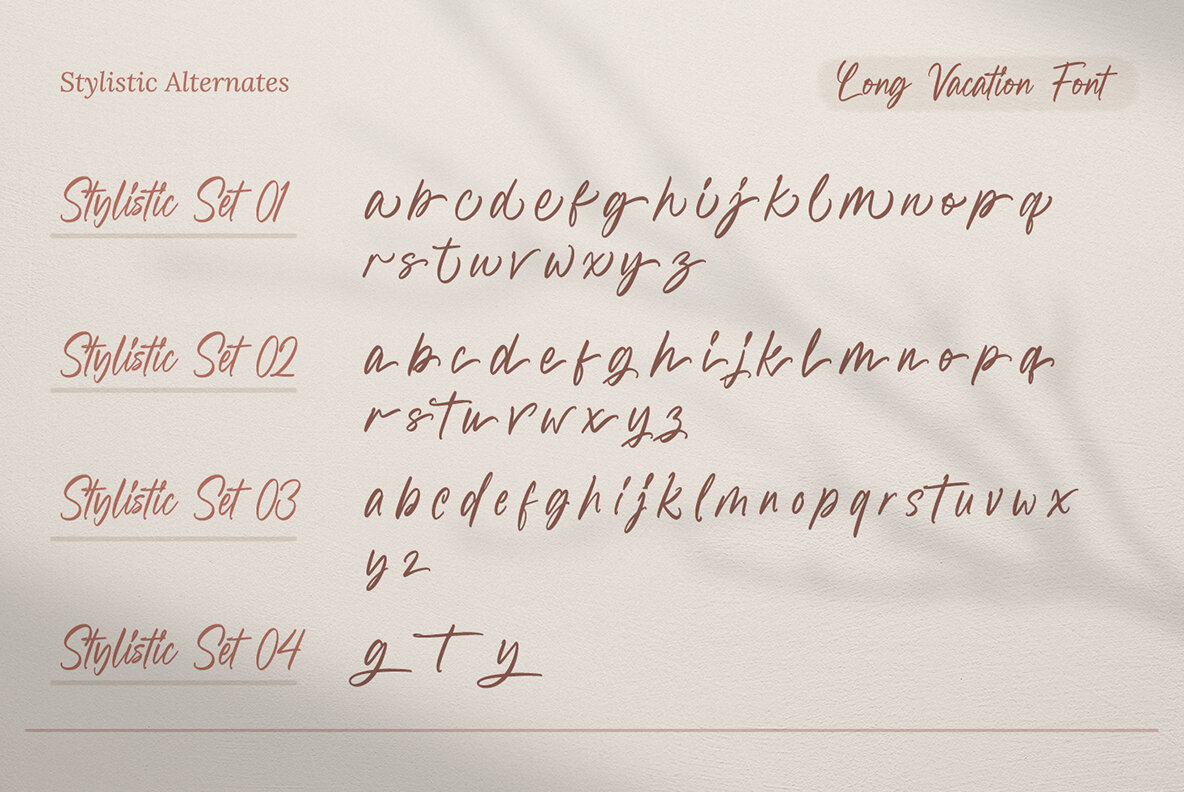 Stylistic Alternates
Long Vacation Font
Stylistic Set 01
a b c d e f g h i j k l m n o p q
r s t u v w x y z
Stylistic Set 02
a b c d e f g h i j k l m n o p q
r s t u r v w x y z
Stylistic Set 03
a b c d e f g h i j k l m n o p q r s t u v w x
y z
Stylistic Set 04
g t y